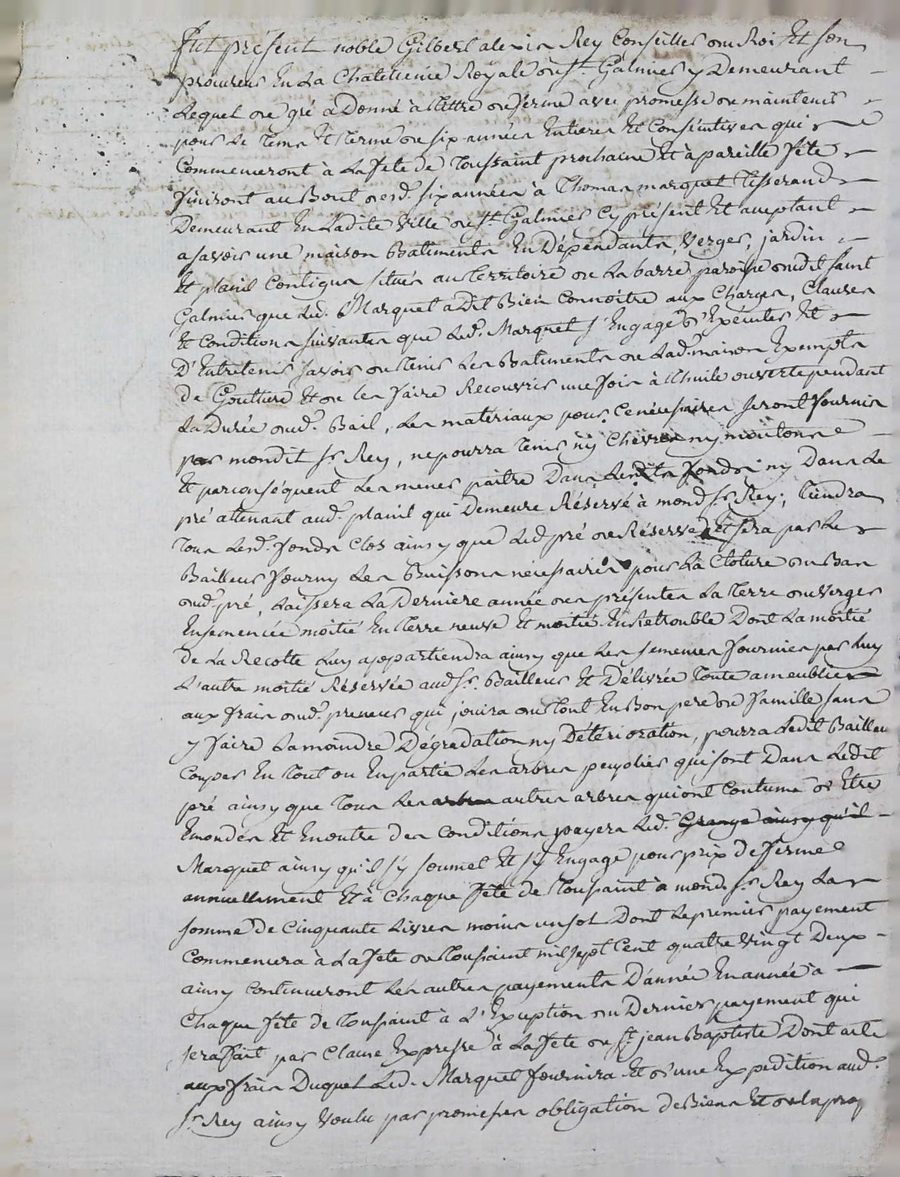 Fut présent noble Gilbert alexis Rey Conseiller du Roi Et son
procureur En La Chatellenie Royale de St. Galmier y Demeurant
Lequel de gré a Donné à tittre de ferme avec promesse de maintenir
pour Le tems Et terme de six années Entieres Et Consécutives qui
Commenceront à La fete de Toussaint prochaine Et à pareille fete
finiront au Bout desd. six années à Thomas marquet Tisserand
Demeurant En Ladite Ville de St. Galmier Cy présent Et acceptant
a savoir une maison Batiments En Dépendants, Verger, jardin
Et plánil Contigus situés au territoire de La barre paroisse dudit saint
Galmier que Led. Marquet a Dit Bien Connoitre aux Charges, Clauses
Et Conditions suivantes que Led. Marquet s'Engage d'Exécuter Et
D'Entretenir savoir de tenir Les Batiments de Lad. maison Exempts
de Gouttiere Et de les faire Recouvrir une fois à thuile ouverte pendant
La Durée dud. Bail, Les matériaux pour Ce nécessaires seront fournis
par mondit Sr. Rey, ne pourra tenir ny Chevres ny moutons
Et par conséquent Les mener paitre Dans Lesdits fonds ny Dans Le
pré attenant aud. planil qui Demeure Réservé à mond. Sr. Rey; tiendra
tous Lesd. fonds Clos ainsy que Led. pré de Réserve Et sera par Le
Bailleur fourny Les Buissons nécessaires pour La Cloture du Bas
dud. pré, Laissera La Derniere année des présentes La terre du Verger
Ensemencée moitié En terre neuve Et moitié En Retrouble Dont La moitié
de La Recolte Luy appartiendra ainsy que Les semences fournies par Luy
L'autre moitié Réservée aud. Sr. Bailleur Et Délivrée toute ameublie
aux frais dud. preneur qui jouira du tout En Bon pere de famille sans
y faire La moindre Dégradation ny Détérioration, pourra Ledit Bailleur
Couper En tout ou En partie Les arbres peupliers qui sont Dans Ledit
pré ainsy que tous Les arbres autres arbres qui ont Coutume d'Etre
Emondés Et En outre des Conditions payera Led. Grange ainsy qu'il
Marquet ainsy qu'il s'y soumet Et s'y Engage pour prix de ferme
annuellement Et à Chaque fete de Toussaint à mond. Sr. Rey La
somme De Cinquante Livres moins un sol Dont Le premier payement
Commencera à La fete de Toussaint mil sept Cent quatre Vingt Deux
ainsy Continueront Les autres payements D'année En année à
Chaque fete de Toussaint à L'Exception du Dernier payement qui
sera fait par Clause Expresse à La fete de St. jean Baptiste Dont acte
aux frais Duquel Led. Marquet fournira Et d'une Expedition aud.
Sr. Rey ainsy Voulu par promesses obligation de Biens Et